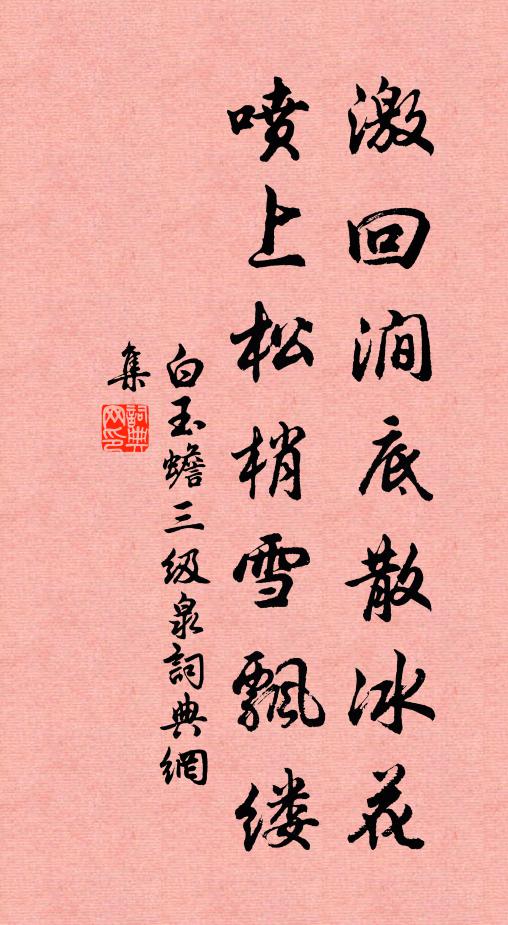 激回涧底散冰花
喷上松梢雪飘缕
白玉蟾三级泉詞典網
集
詞典
网印